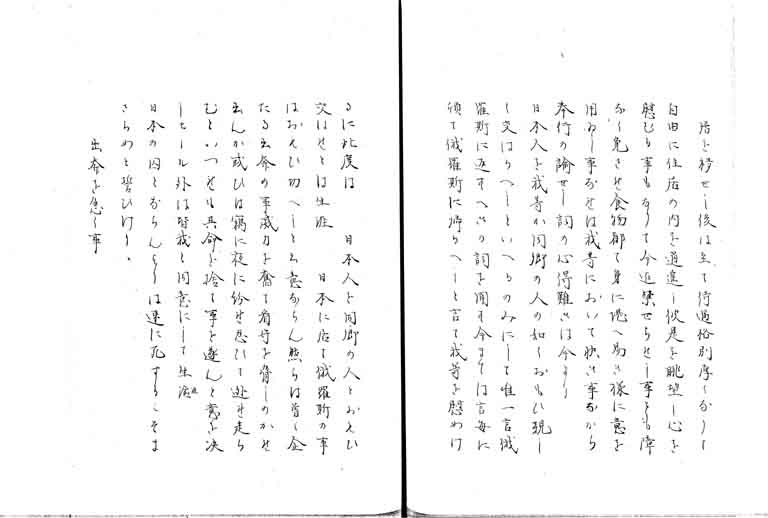 居を移せし後は至て待遇格別厚くなりて
自由に住居の内を逍遥し彼是を眺望し心を
慰むる事もなりて今迄禁せられせし事とも障
なく免させ食物都て身に応へ易き様に意を
用ゆ事なせは我等において快き事なから
奉行の諭せし詞の心得難きは今より
日本人を我等か同郷の人の如くおもひ現し
し交はるへしといへるのみにして唯一言俄
羅斯に返すへきの詞を聞す今まては言毎に
頓て俄羅斯に帰るへしと言て我等を慰めけ
るに此度は 日本人を同郷の人とおもひ
交はせとは生涯 日本に居て俄羅斯の事
はおもひ切へしとの意ならん然らは曽て企
たる出奔の事威力を奮て看守を脅しのかせ
出んか或ひは竊に夜に紛せ忍ひて逃せ走ら
むといつせも其命を捨て事を遂んと意を決
しモール外は皆我と同意にして生涯
日本の囚とならんよりは速に死するこそま
さらめと誓ひけり。
出奔を急く事